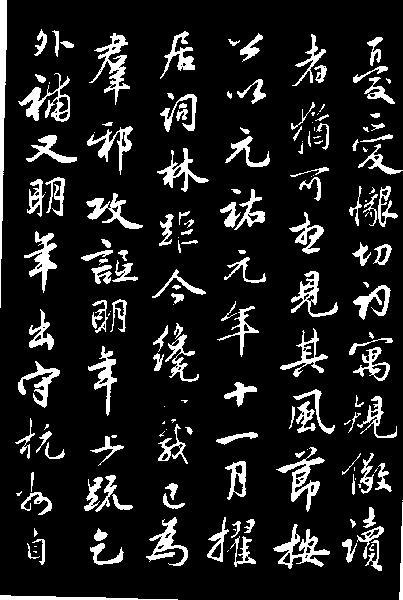 憂愛懇切寓規儆讀
者猶可想見其風節按
公以元祐元年十一月擢
居詞林距今纔一歲已為
羣邪攻詆明年上疏乞
外補又明年出守杭州自